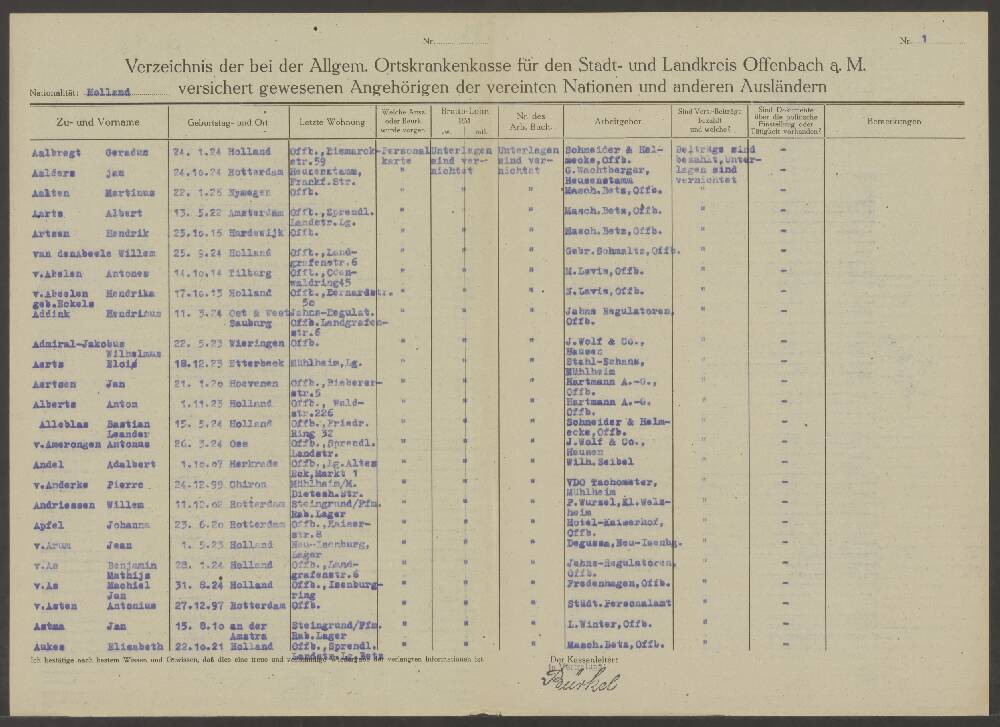 Nr. Nr. 1
Verzeichnis der bei der Allgem. Ortskrankenkasse für den Stadt- und Landkreis Offenbach a. M.
Nationalität: Holland versichert gewesenen Angehörigen der vereinten Nationen und anderen Ausländern
Zu- und Vorname Geburtstag- und Ort Letzte Wohnung Welche Ausw. oder Beurk. wurde vorgen. Brutto-Lohn RM Nr. des Arb. Buch. Arbeitgeber Sind Vers.-Beiträge bezahlt und welche? Sind Dokumente über die politische Einstellung oder Tätigkeit vorhanden? Bemerkungen
Aalbregt Geradus 24. 1.24 Holland Offb.,Bismarck- Personal Unterlagen Unterlagen Schneider & Hel- Beiträge sind -
str.59 karte sind ver- sind ver- mecke,Offb. bezahlt,Unter-
Aalders Jan 24.10.24 Rotterdam Heusenstamm, " nichtet nichtet G.Wachtberger, lagen sind -
Frankf.Str. Heusenstamm vernichtet
Aalten Martinus 22. 1.25 Nymegen Offb. " " " Masch.Betz,Offb. " -
Aarts Albert 13. 5.22 Amsterdam Offb.,Sprendl. " " " Masch.Betz,Offb. " -
Landstr.Lg.
Artsen Hendrik 25.10.15 Hardewijk Offb. " " " Masch.Betz,Offb. " -
van denAbeele Willem 25. 9.24 Holland Offb.,Land- " " " Gebr.Schmaltz,Offb. " -
grafenstr.6
v.Abelen Antones 14.10.14 Tilburg Offb.,Oden- " " " M.Lavis,Offb. " -
waldring45
v.Abeelen Hendrika 17.10.13 Holland Offb.,Bernardstr. " " " N.Lavis,Offb. " -
geb.Eckels 50
Addink Hendrinus 11. 3.24 Ost & West Jahns-Regulat. " " " Jahns Regulatoren, " -
Sauburg Offb.Landgrafen- Offb.
str.6
Admiral-Jakobus 22. 5.23 Wieringen Offb. " " " J.Wolf & Co., " -
Wilhelmus Hausen
Aerts Eloi 18.12.23 Etterbeek Mühlheim,Lg. " " " Stahl-Schanz, " -
Mühlheim
Aertsen Jan 21. 1.20 Hoevenen Offb.,Bieberer- " " " Hartmann A.-G., " -
str.5 Offb.
Alberts Anton 1.11.23 Holland Offb., Wald- " " " Hartmann A.-G. " -
str.226 Offb.
Alleblas Bastian 15. 5.24 Holland Offb.,Friedr. " " " Schneider & Helm- " -
Leander Ring 32 ecke,Offb.
v.Amerongen Antonus 26. 3.24 Ose Offb.,Sprendl. " " " J.Wolf & Co., " -
Landstr. Hausen
Andel Adalbert 1.10.07 Merkrade Offb.,Lg.Altes " " " Wilh.Seibel " -
Eck,Markt 1
v.Anderke Pierre 24.12.99 Chiron Mühlheim/M. " " " VDO Tachometer, " -
Dietesh.Str. Mühlheim
Andriessen Willem 11.12.02 Rotterdam Steingrund/Pfm. " " " P.Wurzel,Kl.Welz- " -
Rab.Lager heim
Apfel Johanna 23. 6.20 Rotterdam Offb.,Kaiser- " " " Hotel-Kaiserhof, " -
str.8 Offb.
v.Arum Jean 1. 5.23 Holland Neu-Isenburg, " " " Degussa,Neu-Isenbg. " -
Lager
v.As Benjamin 28. 1.24 Holland Offb.,Land- " " " Jahns-Regulatoren, " -
Mathijs grafenstr.6 Offb.
v.As Machiel 31. 8.24 Holland Offb.,Isenburg- " " " Fredenhagen,Offb. " -
Jan ring
v.Asten Antonius 27.12.97 Rotterdam Offb. " " " Städt.Personalamt " -
Astma Jan 15. 8.10 an der Steingrund/Pfm. " " " L.Winter,Offb. " -
Amstra Rab.Lager
Aukes Elisabeth 22.10.21 Holland Offb.,Sprendl. " " " Masch.Betz,Offb. " -
Landstr.Lg.Betz
Ich bestätige nach bestem Wissen und Gewissen, daß dies eine treue und vollständige Wiedergabe der verlangten Informationen ist. Der Kassenleiter:
Bürkel